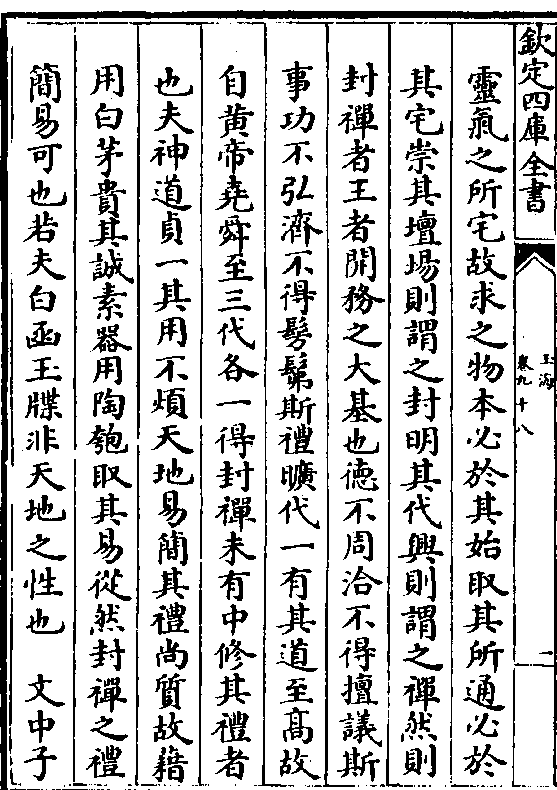 欽定四庫全書
玉海
卷九十八
一
靈氣之所宅故求之物本必於其始取其所通必於
其宅崇其壇場則謂之封明其代興則謂之禪然則
封禪者王者開務之大基也德不周洽不得擅議斯
事功不弘濟不得髣髴斯禮曠代一有其道至高故
自黄帝堯舜至三代各一得封禪未有中修其禮者
也夫神道貞一其用不煩天地易簡其禮尚質故藉
用白茅貴其誠素器用陶匏取其易從然封禪之禮
簡易可也若夫白函玉牒非天地之性也　文中子